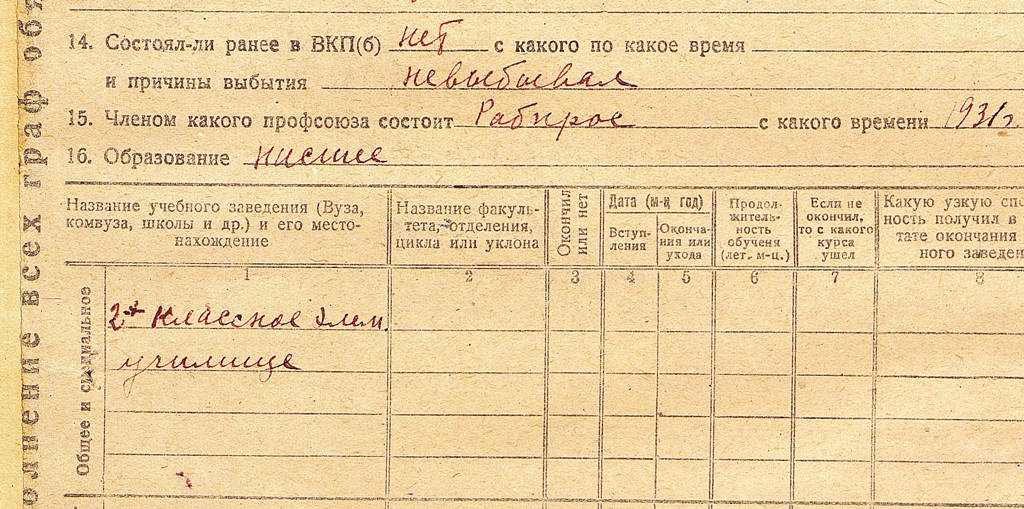 14. Состоял-ли ранее в ВКП(б) нет с какого по какое время
и причины выбытия невыбывал
15. Членом какого профсоюза состоит Рабпрос с какого времени 1931 г.
16. Образование низшее
Название учебного заведения (Вуза,
комвуза, школы и др.) и его место-
нахождение
Название факуль-
тета, отделения,
цикла или уклона
Окончил
или нет
Дата (м-ц год)
Вступ-
ления
Оконча-
ния или
ухода
Продол-
житель-
ность
обученя
(лет. м-ц.)
Если не
окончил,
то с какого
курса
ушел
Какую узкую спе
ность получил в
тате окончания
ного заведен
1 2 3 4 5 6 7 8
Общее и специальное
2х классное элем.
училище
олнение всех граф обя